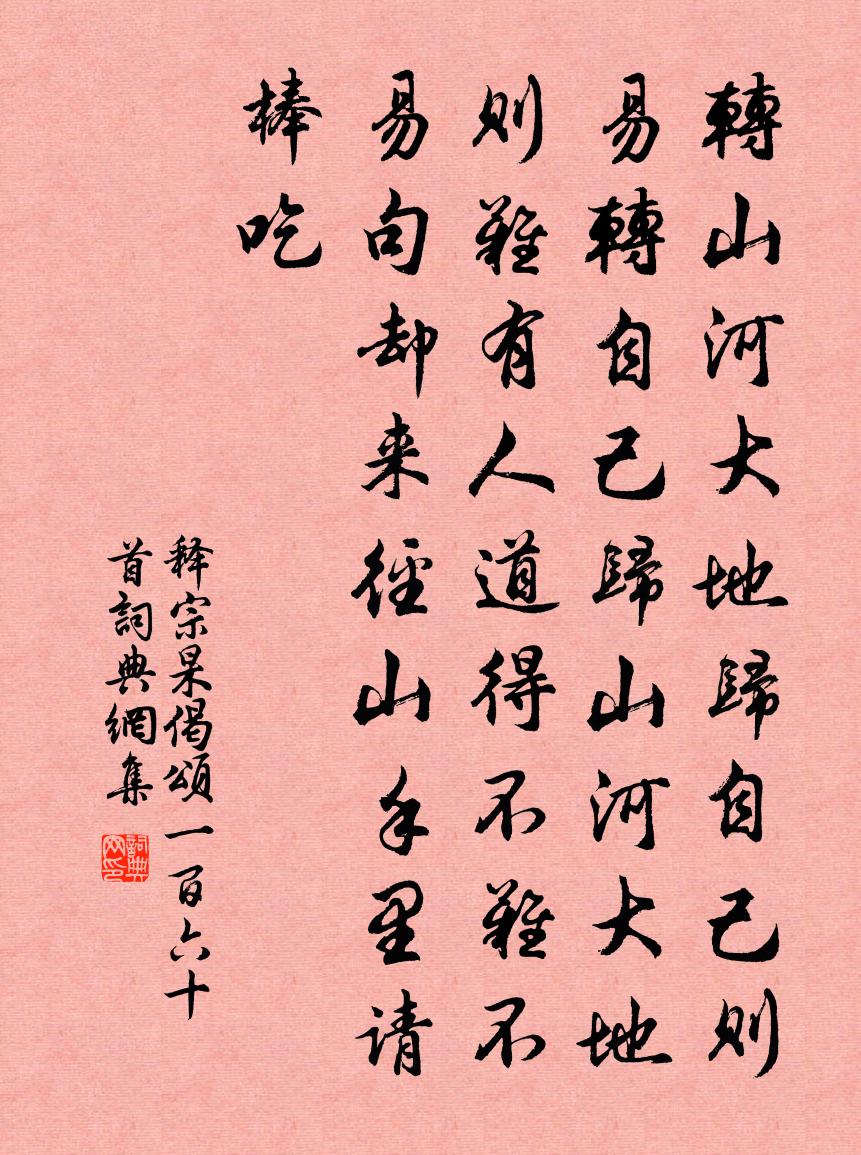 轉山河大地歸自己則
易轉自己歸山河大地
則難有人道得不難不
易句却来徑山手里请
棒吃
释宗杲偈頌一百六十
首詞典網集
詞典网印